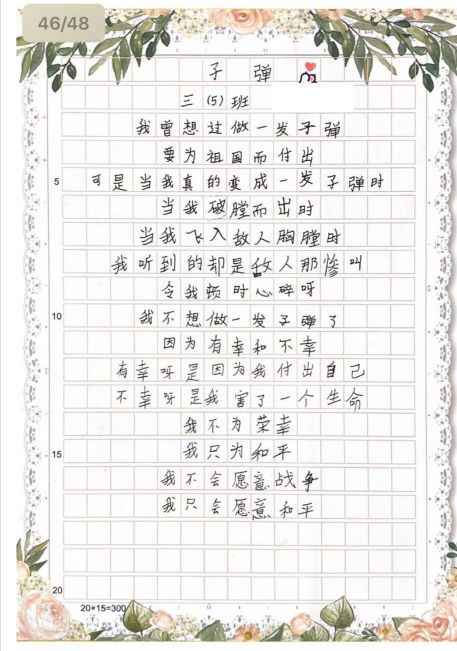 46/48
子弹
三(5)班
我曾想过做一发子弹
要为祖国而付出
5 可是当我真的变成一发子弹时
当我破膛而出时
当我飞入敌人胸膛时
我听到的却是敌人那惨叫
令我顿时心碎呀
10 我不想做一发子弹了
因为有幸和不幸
有幸呀是因为我付出自己
不幸呀是我害了一个生命
我不为荣幸
15 我只为和平
我不会愿意战争
我只会愿意和平
20
20×15=300